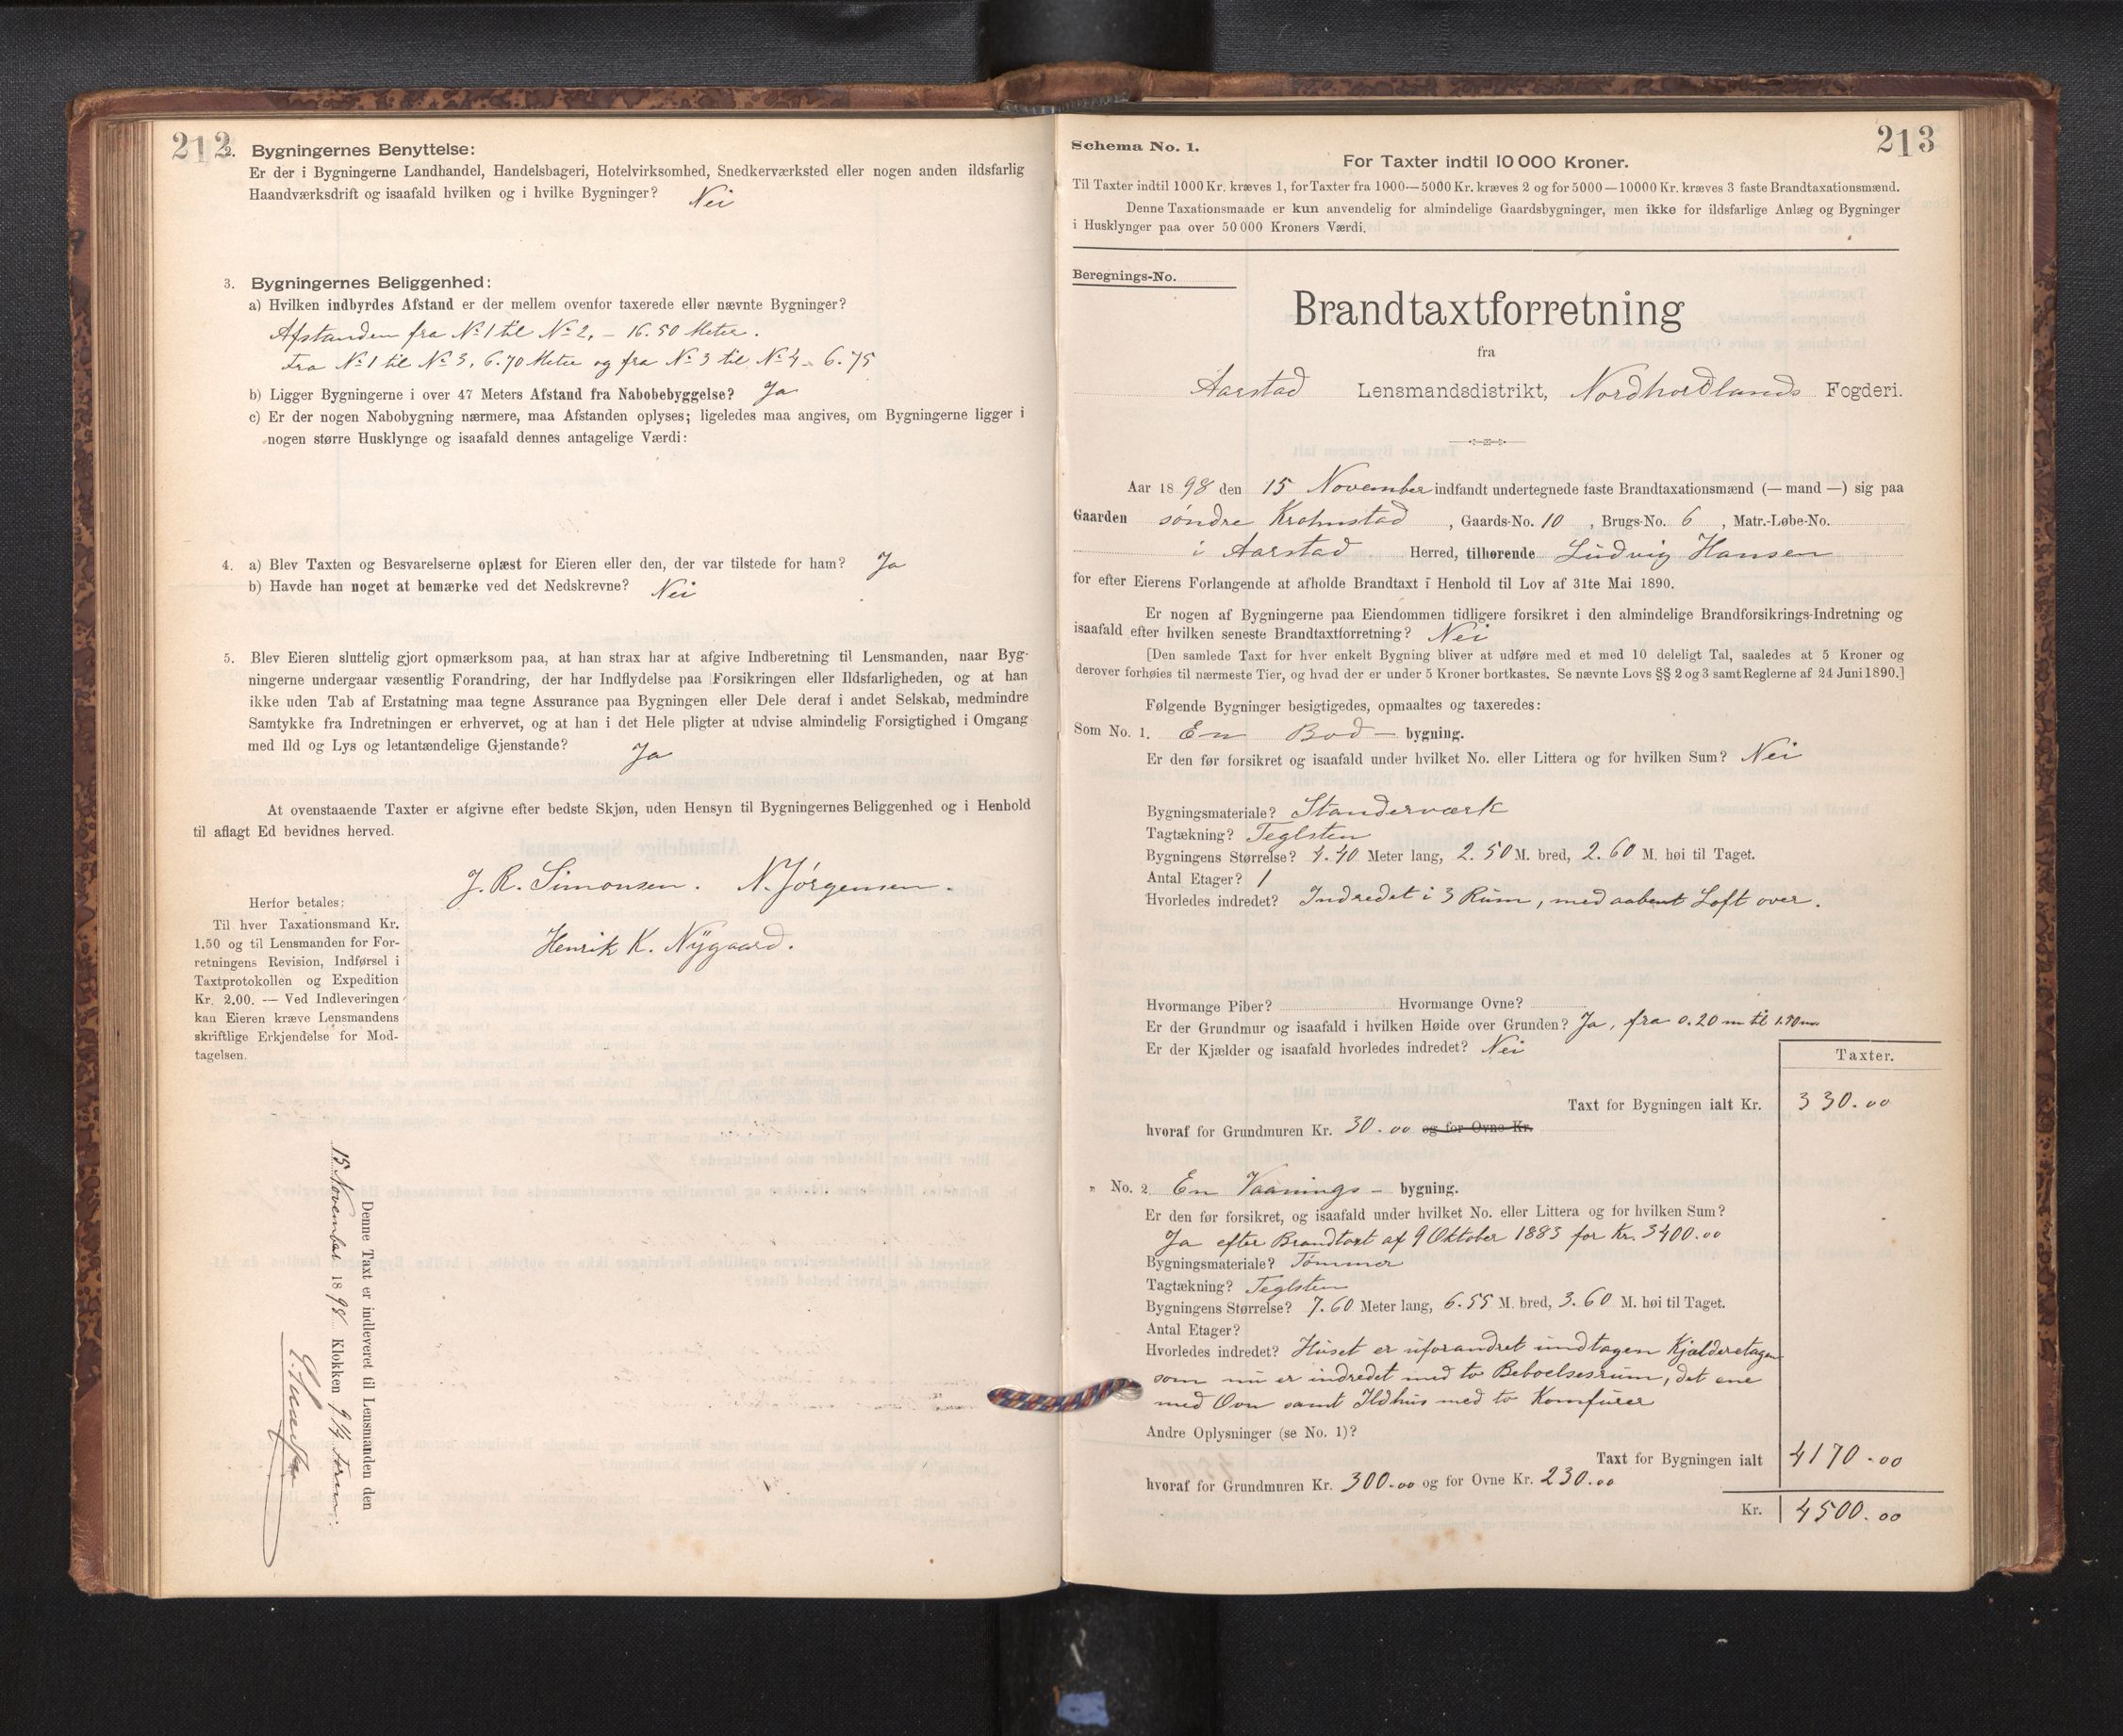 212
2. Bygningernes Benyttelse:
Er der i Bygningerne Landhandel, Handelsbageri, Hotelvirksomhed, Snedkerværksted eller nogen anden ildsfarlig
Haandværksdrift og isaafald hvilken og i hvilke Bygninger? Nei
3. Bygningernes Beliggenhed:
a) Hvilken indbyrdes Afstand er der mellem ovenfor taxerede eller nævnte Bygninger?
Afstanden fra No 1 til No 2, – 16.50 Meter.
Fra No 1 til No 3, 6.70 Meter og fra No 3 til No 4 – 6.75
b) Ligger Bygningerne i over 47 Meters Afstand fra Nabobebyggelse? Ja
c) Er der nogen Nabobygning nærmere, maa Afstanden oplyses; ligeledes maa angives, om Bygningerne ligger i
nogen større Husklynge og isaafald dennes antagelige Værdi:
4. a) Blev Taxten og Besvarelserne oplæst for Eieren eller den, der var tilstede for ham? Ja
b) Havde han noget at bemærke ved det Nedskrevne? Nei
5. Blev Eieren sluttelig gjort opmærksom paa, at han strax har at afgive Indberetning til Lensmanden, naar Byg-
ningerne undergaar væsentlig Forandring, der har Indflydelse paa Forsikringen eller Ildsfarligheden, og at han
ikke uden Tab af Erstatning maa tegne Assurance paa Bygningen eller Dele deraf i andet Selskab, medmindre
Samtykke fra Indretningen er erhvervet, og at han i det Hele pligter at udvise almindelig Forsigtighed i Omgang
med Ild og Lys og letantændelige Gjenstande? Ja
At ovenstaaende Taxter er afgivne efter bedste Skjøn, uden Hensyn til Bygningernes Beliggenhed og i Henhold
til aflagt Ed bevidnes herved.
J. R. Simonsen. N. Jörgensen.
Henrik K. Nÿgaard.
Herfor betales:
Til hver Taxationsmand Kr.
1.50 og til Lensmanden for For-
retningens Revision, Indførsel i
Taxtprotokollen og Expedition
Kr. 2.00. — Ved Indleveringen
kan Eieren kræve Lensmandens
skriftlige Erkjendelse for Mod-
tagelsen.
Denne Taxt er indleveret til Lensmanden den
15 November 1898 Klokken 9 1/2 form:
213
Schema No. 1.
For Taxter indtil 10 000 Kroner.
Til Taxter indtil 1000 Kr. kræves 1, for Taxter fra 1000—5000 Kr. kræves 2 og for 5000—10000 Kr. kræves 3 faste Brandtaxationsmænd.
Denne Taxationsmaade er kun anvendelig for almindelige Gaardsbygninger, men ikke for ildsfarlige Anlæg og Bygninger
i Husklynger paa over 50 000 Kroners Værdi.
Beregnings-No.
Brandtaxtforretning
fra
Aarstad Lensmandsdistrikt, Nordhordlands Fogderi.
Aar 1898 den 15 November indfandt undertegnede faste Brandtaxationsmænd (— mand —) sig paa
Gaarden söndre Krohnstad, Gaards-No. 10, Brugs-No. 6, Matr.-Løbe-No.
i Aarstad Herred, tilhørende Ludvig Hansen
for efter Eierens Forlangende at afholde Brandtaxt i Henhold til Lov af 31te Mai 1890.
Er nogen af Bygningerne paa Eiendommen tidligere forsikret i den almindelige Brandforsikrings-Indretning og
isaafald efter hvilken seneste Brandtaxtforretning? Nei
[Den samlede Taxt for hver enkelt Bygning bliver at udføre med et med 10 deleligt Tal, saaledes at 5 Kroner og
derover forhøies til nærmeste Tier, og hvad der er under 5 Kroner bortkastes. Se nævnte Lovs §§ 2 og 3 samt Reglerne af 24 Juni 1890.]
Følgende Bygninger besigtigedes, opmaaltes og taxeredes:
Som No. 1. En Bod – bygning.
Er den før forsikret og isaafald under hvilket No. eller Littera og for hvilken Sum? Nei
Bygningsmateriale? Standerværk
Tagtækning? Teglsten
Bygningens Størrelse? 4.40 Meter lang, 2.50 M. bred, 2.60 M. høi til Taget.
Antal Etager? 1
Hvorledes indredet? Indredet i 3 Rum, med aabent Loft over.
Hvormange Piber? Hvormange Ovne?
Er der Grundmur og isaafald i hvilken Høide over Grunden? Ja, fra 0.20 m til 1.70 m
Er der Kjælder og isaafald hvorledes indredet? Nei
Taxter.
Taxt for Bygningen ialt Kr. 330.00
hvoraf for Grundmuren Kr. 30.00 og for Ovne Kr.
" No. 2 En Vaanings – bygning.
Er den før forsikret, og isaafald under hvilket No. eller Littera og for hvilken Sum?
Ja efter Brandtaxt af 9 Oktober 1883 for Kr. 3400.00
Bygningsmateriale? Tömmer
Tagtækning? Teglsten
Bygningens Størrelse? 7.60 Meter lang, 6.55 M. bred, 3.60 M. høi til Taget.
Antal Etager?
Hvorledes indredet? Huset er uforandret undtagen Kjælderetagen
som nu er indredet med to Beboelsesrum, det ene
med Ovn samt Ildhus med to Komfurer
Andre Oplysninger (se No. 1)?
Taxt for Bygningen ialt 4170.00
hvoraf for Grundmuren Kr. 300.00 og for Ovne Kr. 230.00
Kr. 4500.00